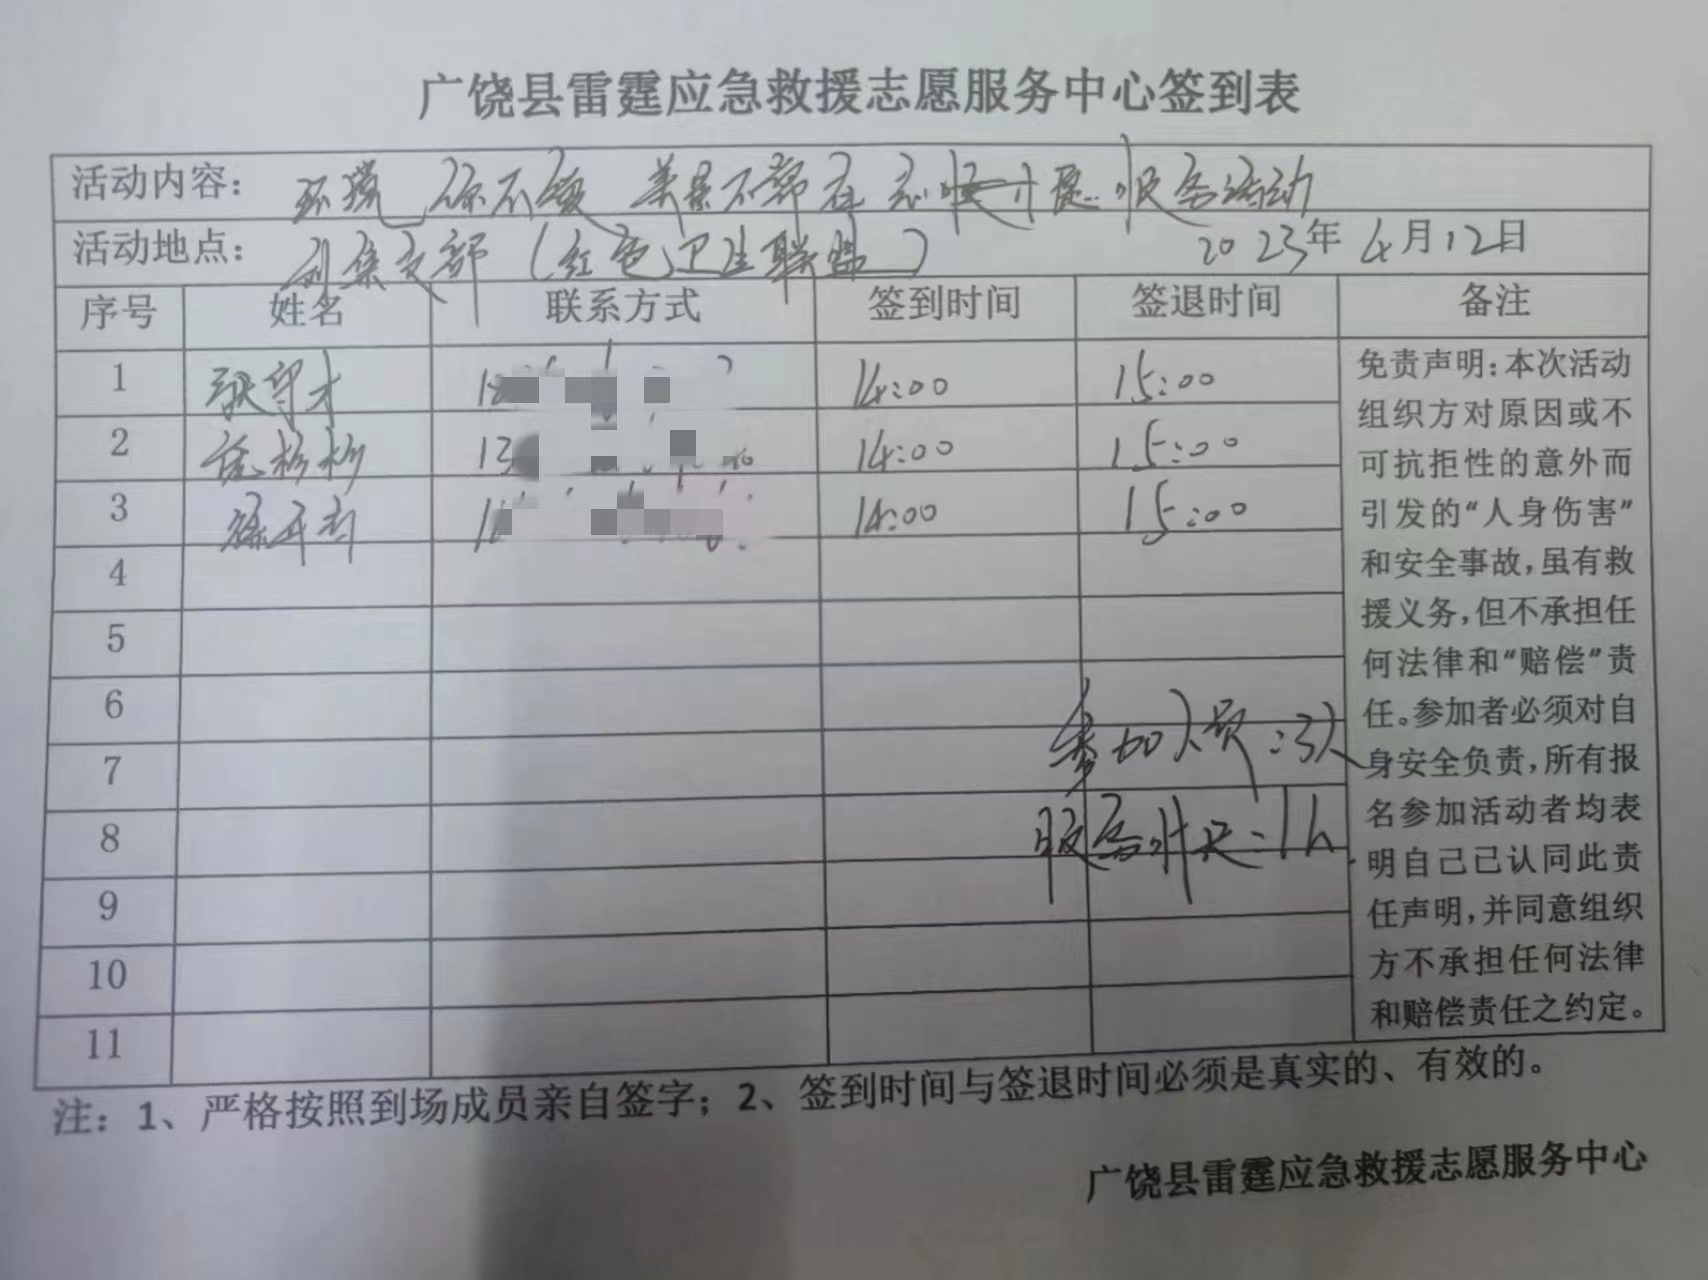 广饶县雷霆应急救援志愿服务中心签到表
活动内容: 环境 你不 美景不 在 志愿服务活动
活动地点: 刘集支部 (红色卫生联盟) 2023年4月12日
序号 姓名 联系方式 签到时间 签退时间 备注
1 张守才 14:00 15:00
2 13 14:00 15:00
3 14:00 15:00
4
5
6
7
8
9
10
11
参加人员:3人
服务时长:1h.
免责声明:本次活动
组织方对原因或不
可抗拒性的意外而
引发的“人身伤害”
和安全事故,虽有救
援义务,但不承担任
何法律和“赔偿”责
任。参加者必须对自
身安全负责,所有报
名参加活动者均表
明自己已认同此责
任声明,并同意组织
方不承担任何法律
和赔偿责任之约定。
注:1、严格按照到场成员亲自签字;2、签到时间与签退时间必须是真实的、有效的。
广饶县雷霆应急救援志愿服务中心